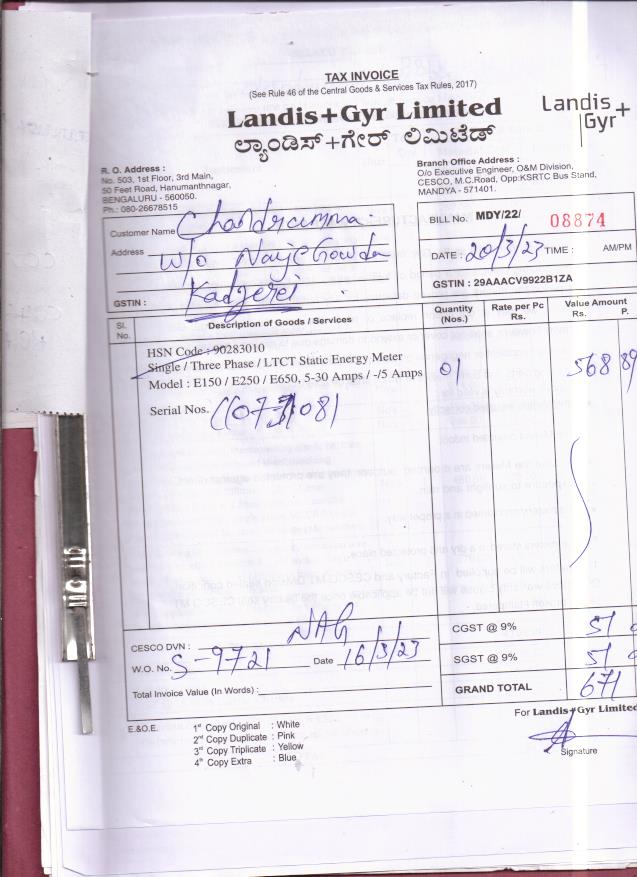 TAX INVOICE
(See Rule 46 of the Central Goods & Services Tax Rules, 2017)
Landis+Gyr Limited
ಲ್ಯಾಂಡಿಸ್+ಗೇರ್ ಲಿಮಿಟೆಡ್
Landis+
Gyr+
R. O. Address :
No. 503, 1st Floor, 3rd Main,
50 Feet Road, Hanumanthnagar,
BENGALURU - 560050.
Ph.: 080-26678515
Branch Office Address :
O/o Executive Engineer, O&M Division,
CESCO, M.C.Road, Opp:KSRTC Bus Stand,
MANDYA - 571401.
Customer Name Chandramma
Address W/o
GSTIN :
BILL No. MDY/22/ 08874
DATE : 20/3/23 TIME : AM/PM
GSTIN : 29AAACV9922B1ZA
Sl. No. Description of Goods / Services Quantity (Nos.) Rate per Pc Rs. Value Amount Rs. P.
HSN Code : 90283010
Single / Three Phase / LTCT Static Energy Meter
Model : E150 / E250 / E650, 5-30 Amps / -/5 Amps 01 568 89
Serial Nos.
CESCO DVN : NAG
W.O. No. S-9721 Date 16/3/23
Total Invoice Value (In Words) :
CGST @ 9% 51
SGST @ 9% 51
GRAND TOTAL 671
E.&O.E.
1st Copy Original : White
2nd Copy Duplicate : Pink
3rd Copy Triplicate : Yellow
4th Copy Extra : Blue
For Landis+Gyr Limited
Signature